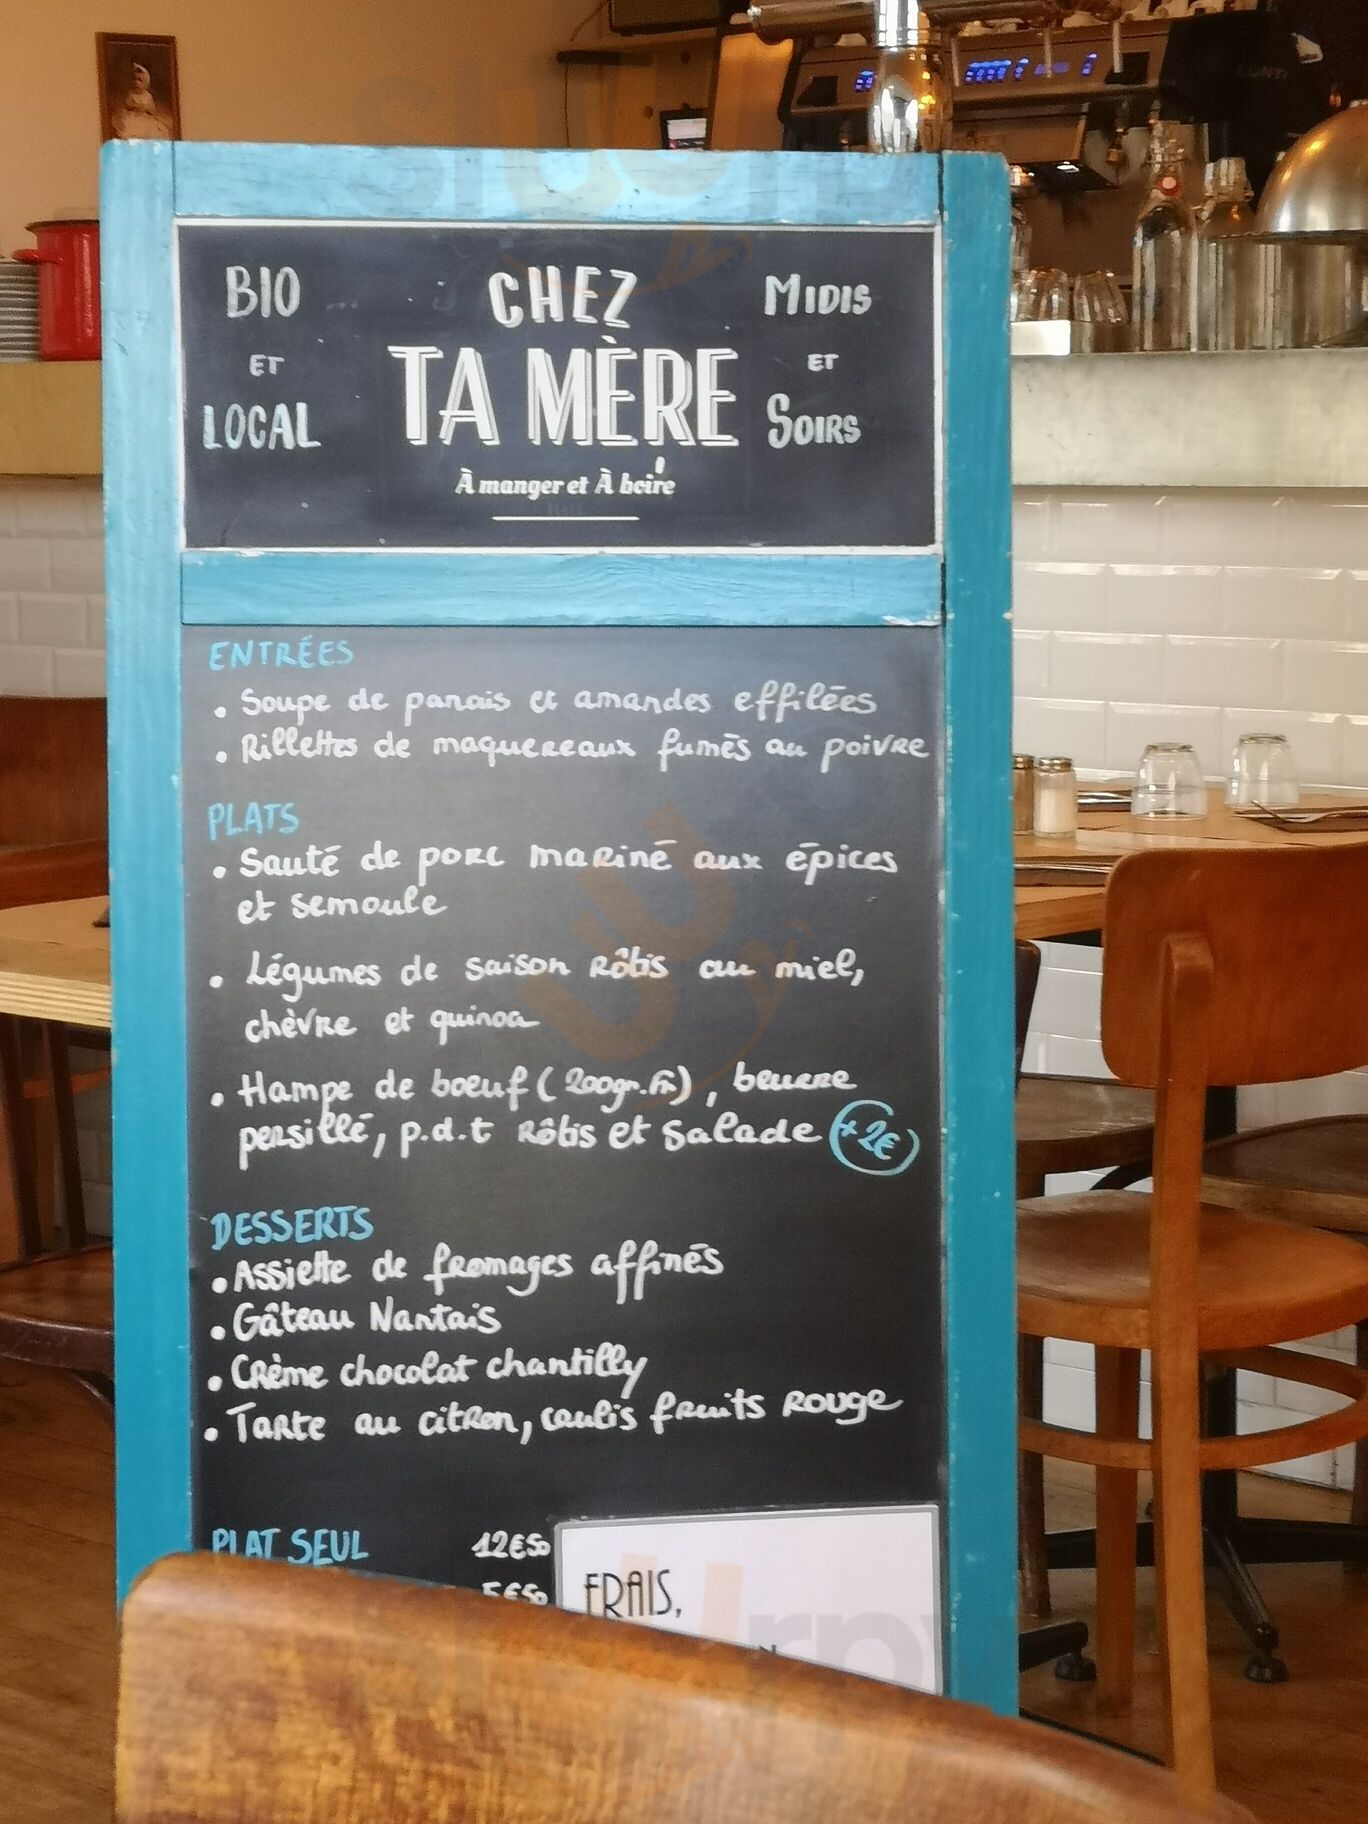 BIO
ET
LOCAL
CHEZ
TA MÈRE
À manger et À boire
MIDIS
ET
SOIRS
ENTRÉES
• Soupe de panais et amandes effilées
• Rillettes de maquereaux fumés au poivre
PLATS
• Sauté de porc mariné aux épices
et semoule
• Légumes de saison Rôtis au miel,
chèvre et quinoa
• Hampe de boeuf (200gr. Fr), beurre
persillé, p.d.t Rôtis et Salade +2€
DESSERTS
• Assiette de fromages affinés
• Gâteau Nantais
• Crème chocolat chantilly
• Tarte au citron, coulis fruits Rouge
PLAT SEUL 12€50
5€50
FRAIS,